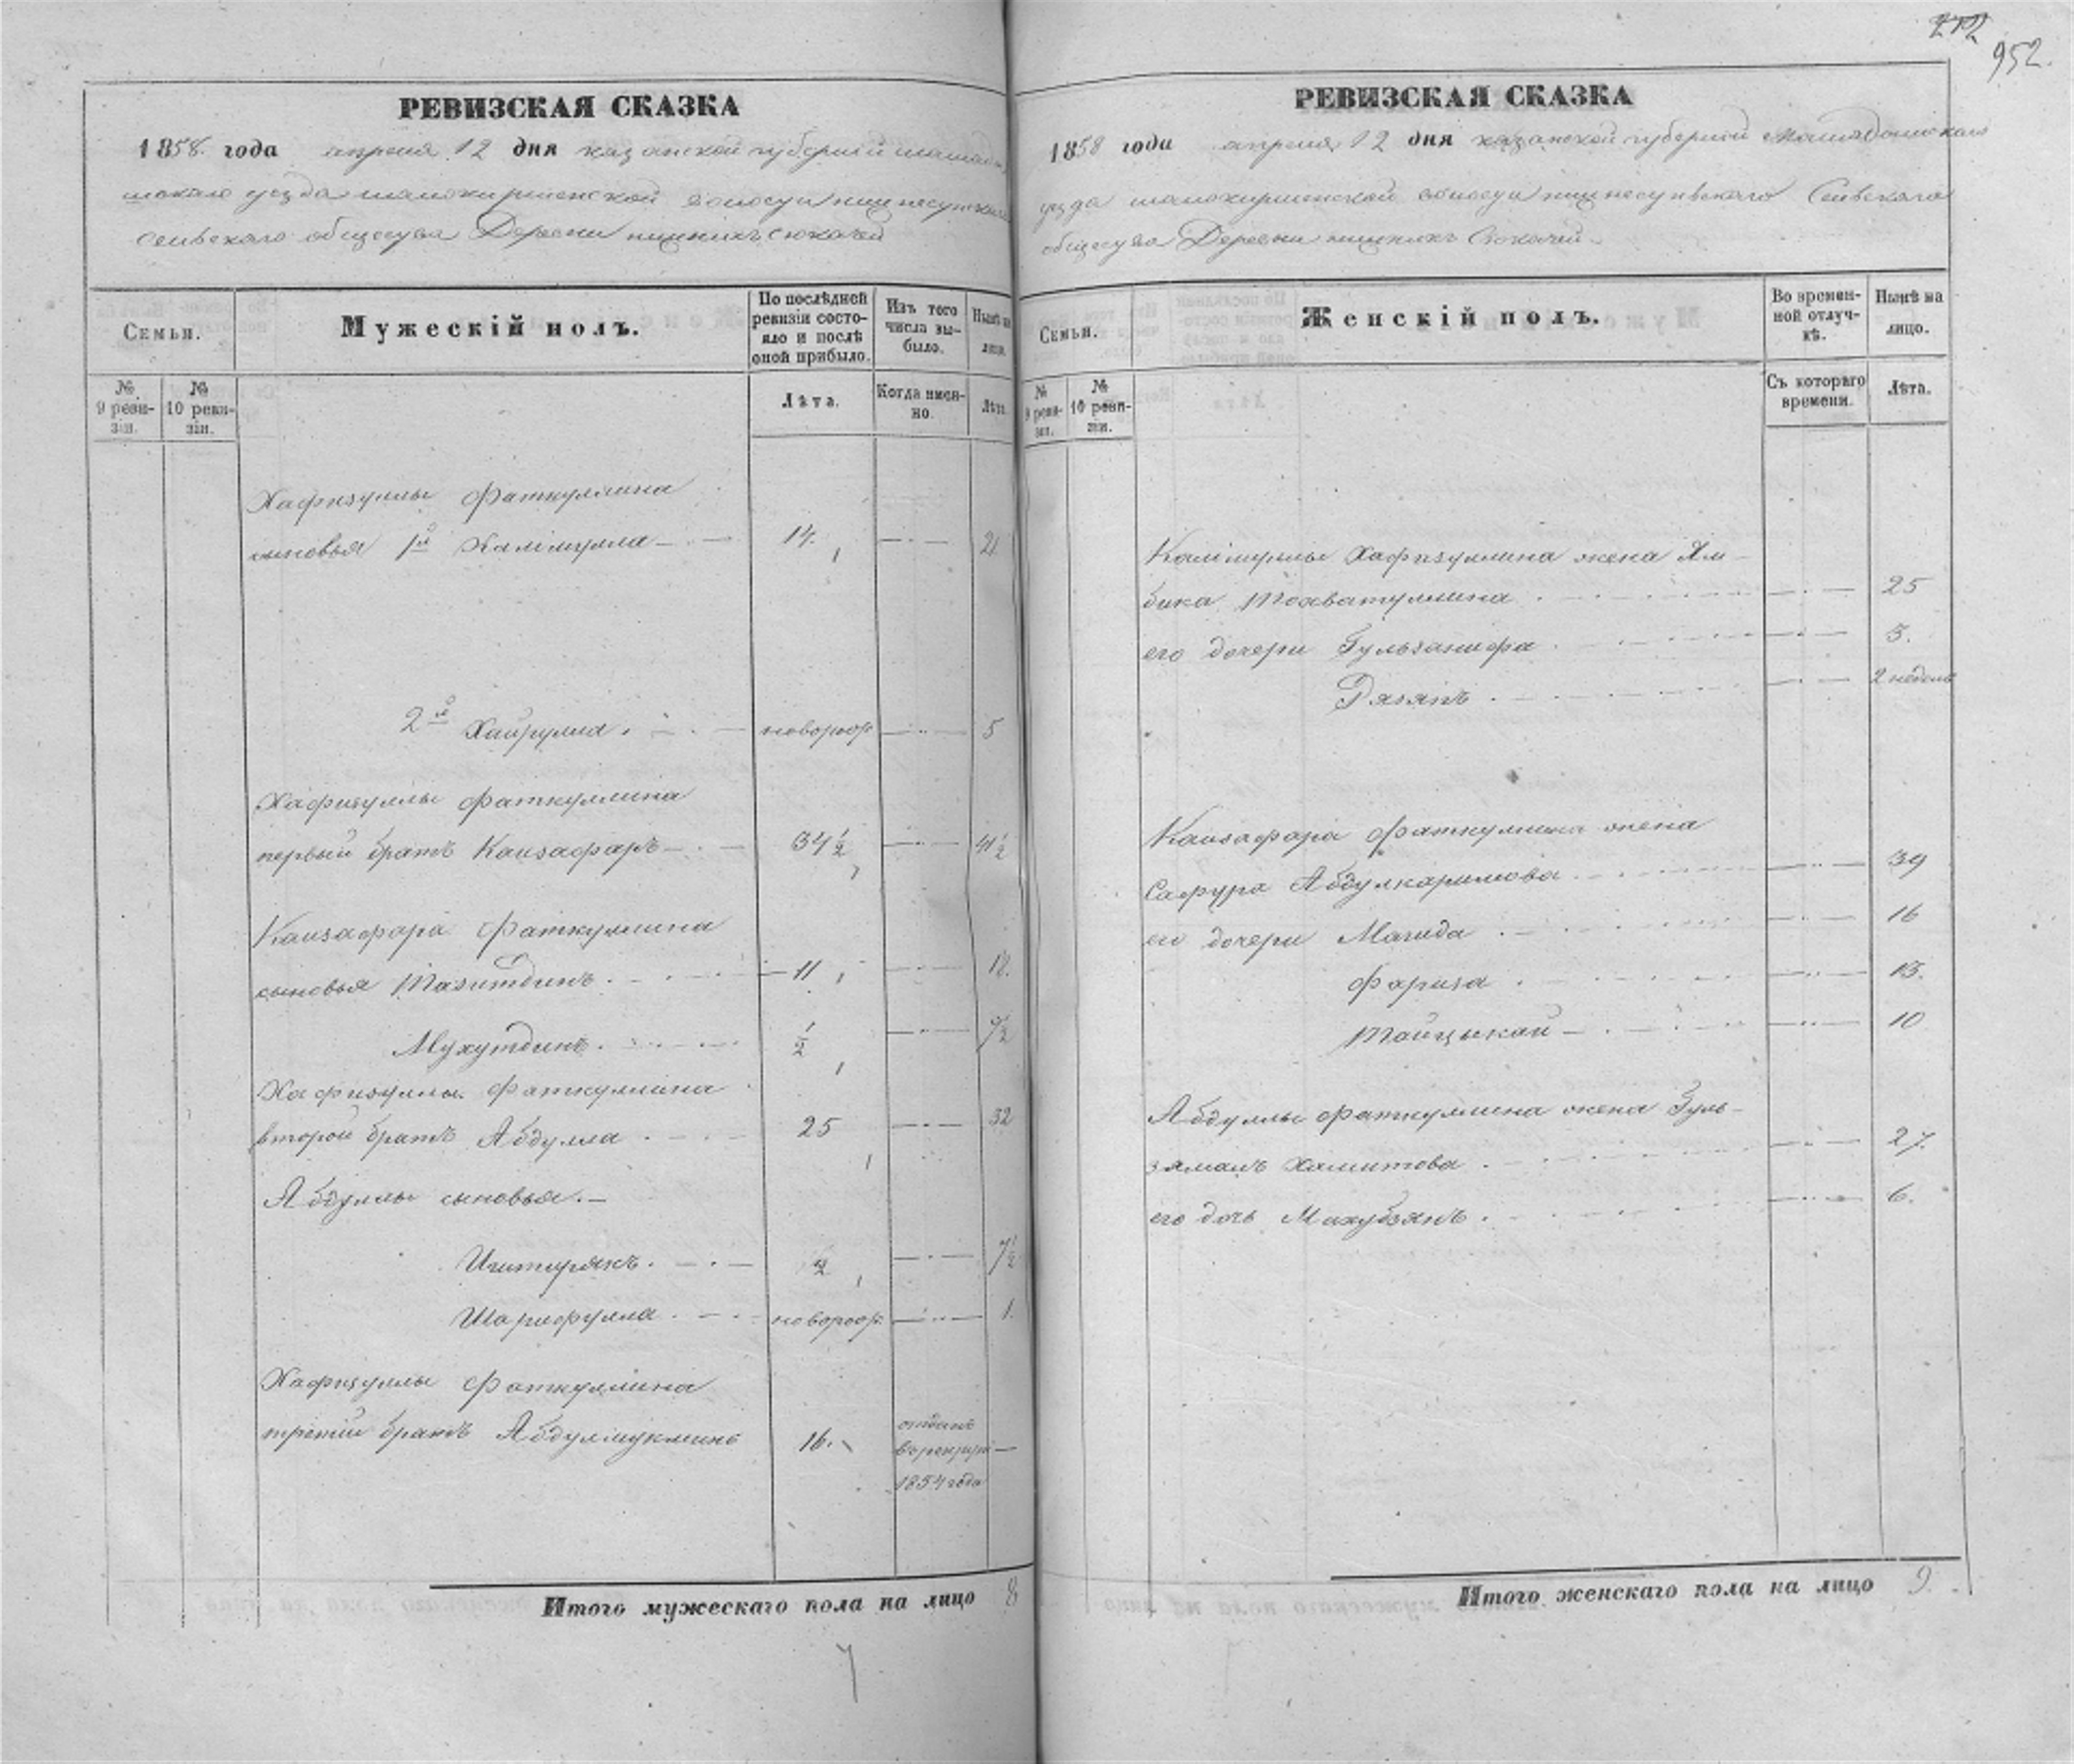 212
952.
РЕВИЗСКАЯ СКАЗКА
1858. года апреля 12 дня казанской губернии мамады
шскаго уезда волости
селвскаго общества Деревни нижнихъ сюкачей
Семьи.
Мужескій полъ.
По послѣдней ревизіи состояло и послѣ оной прибыло.
Изъ того числа выбыло.
Нынѣ на лицо.
№ 9 ревизіи.
№ 10 ревизіи.
Лѣта.
Когда именно.
Лѣта.
Хафизуллы Фаткуллина
сыновья 1й Калимулла 14. 21
2й Хайрулла новорож 5
Хафизуллы Фаткуллина
первый братъ Канзафаръ 34 1/2 41 1/2
Канзафара Фаткуллина
сыновья Тазитдинъ 11 18.
Мухутдинъ 1/2 7 1/2
Хафизуллы Фаткуллина
второй братъ Абдулла 25 32
Абдуллы сыновья.
1/2 7 1/2
Шарифулла новорож. 1.
Хафизуллы Фаткуллина
третий братъ Абдулмукминъ 16. отданъ
въ рекруты
1854 года
Итого мужескаго пола на лицо 8
7
РЕВИЗСКАЯ СКАЗКА
1858 года апреля 12 дня казанской губернии Мамадышскаго
уезда волости Селвскаго
общества Деревни нижнихъ Сюкачей
Семьи.
Женскій полъ.
Во временной отлучкѣ.
Нынѣ на лицо.
№ 9 ревизіи.
№ 10 ревизіи.
Съ котораго времени.
Лѣта.
Калимуллы Хафизуллина жена Ям-
бика Тохватуллина 25
его дочери Гульзанифа 3.
Рязяпъ 2 недель
Канзафара Фаткуллина жена
Сафура Абдулкаримова 39
его дочери Магида 16
Фариза 13.
Тайцыкай 10
Абдуллы Фаткуллина жена Гуль-
зямалъ Хамитова 27.
его дочь Махубзянъ 6.
Итого женскаго пола на лицо 9.